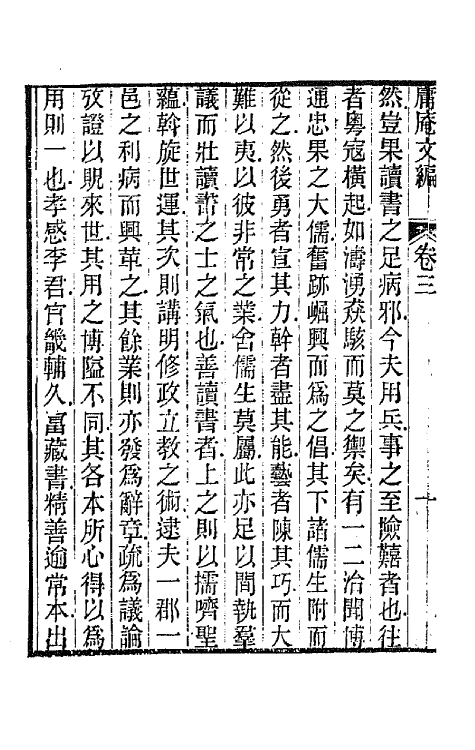 庸庵文編 卷三 十
然豈果讀書之足病邪今夫用兵事之至險囏者也往
者粵寇橫起如濤湧猋駭而莫之禦矣有一二洽聞博
通忠果之大儒奮跡崛興而為之倡其下諸儒生附而
從之然後勇者宣其力幹者盡其能藝者陳其巧而大
難以夷以彼非常之業舍儒生莫屬此亦足以間執羣
議而壯讀書之士之氣也善讀書者上之則以擩嚌聖
蘊斡旋世運其次則講明修政立教之術逮夫一郡一
邑之利病而興革之其餘業則亦發為辭章疏為議論
攷證以貺來世其用之博隘不同其各本所心得以為
用則一也孝感李君官畿輔久富藏書精善逾常本出